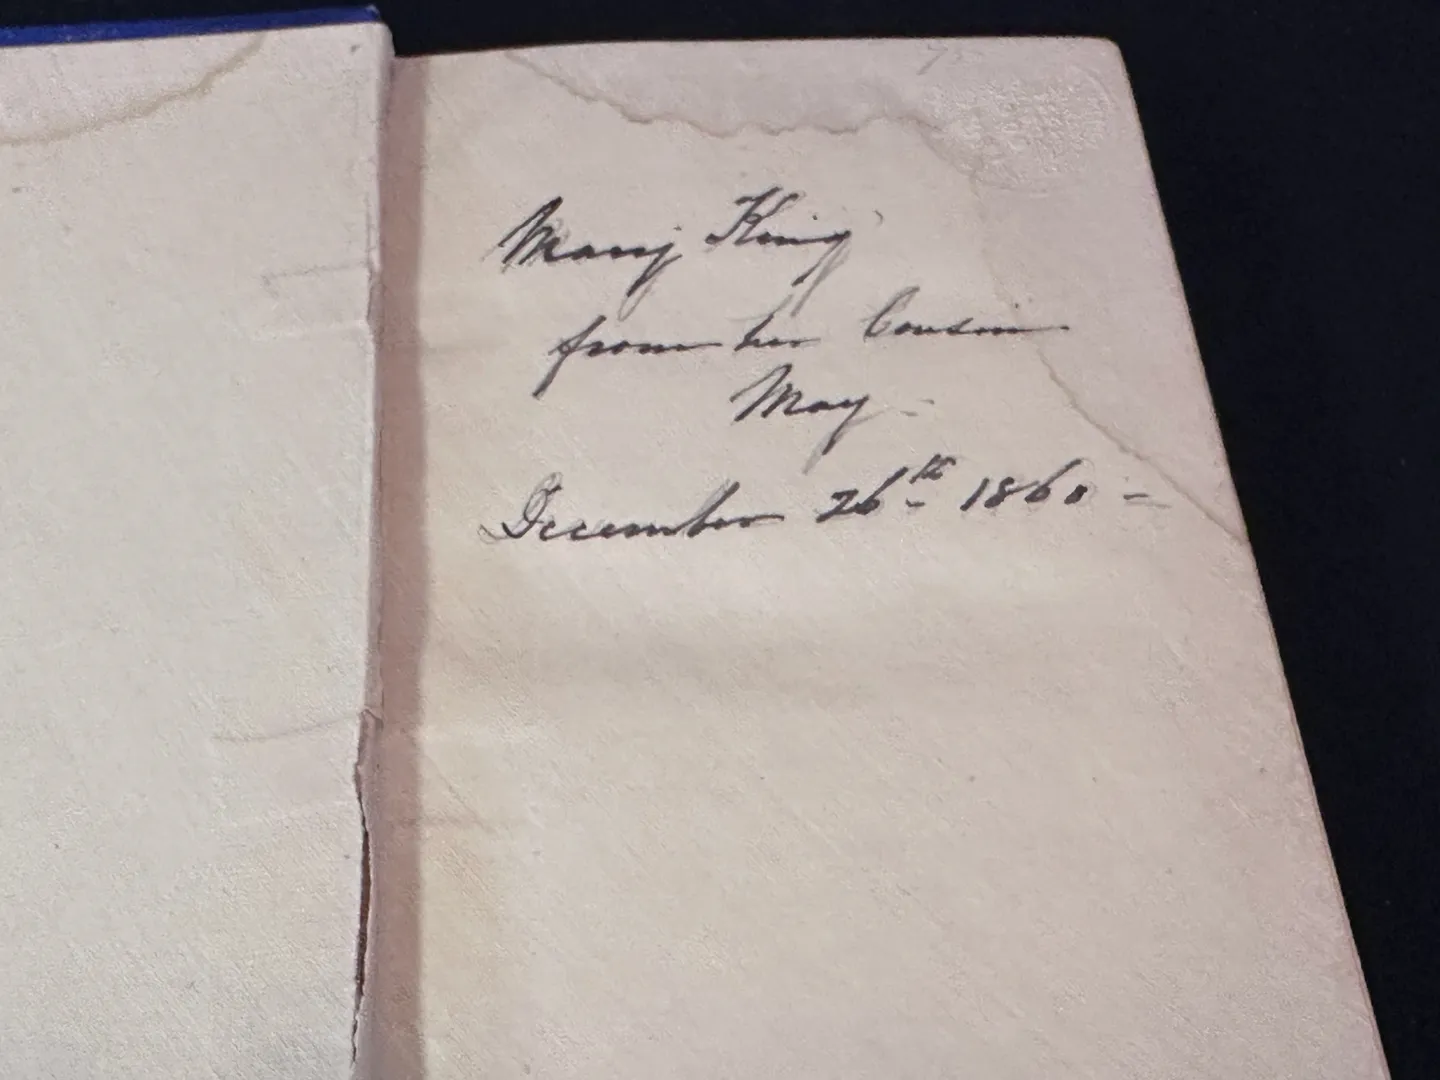 Mary King
from her Cousin
May -
December 26th 1860 -